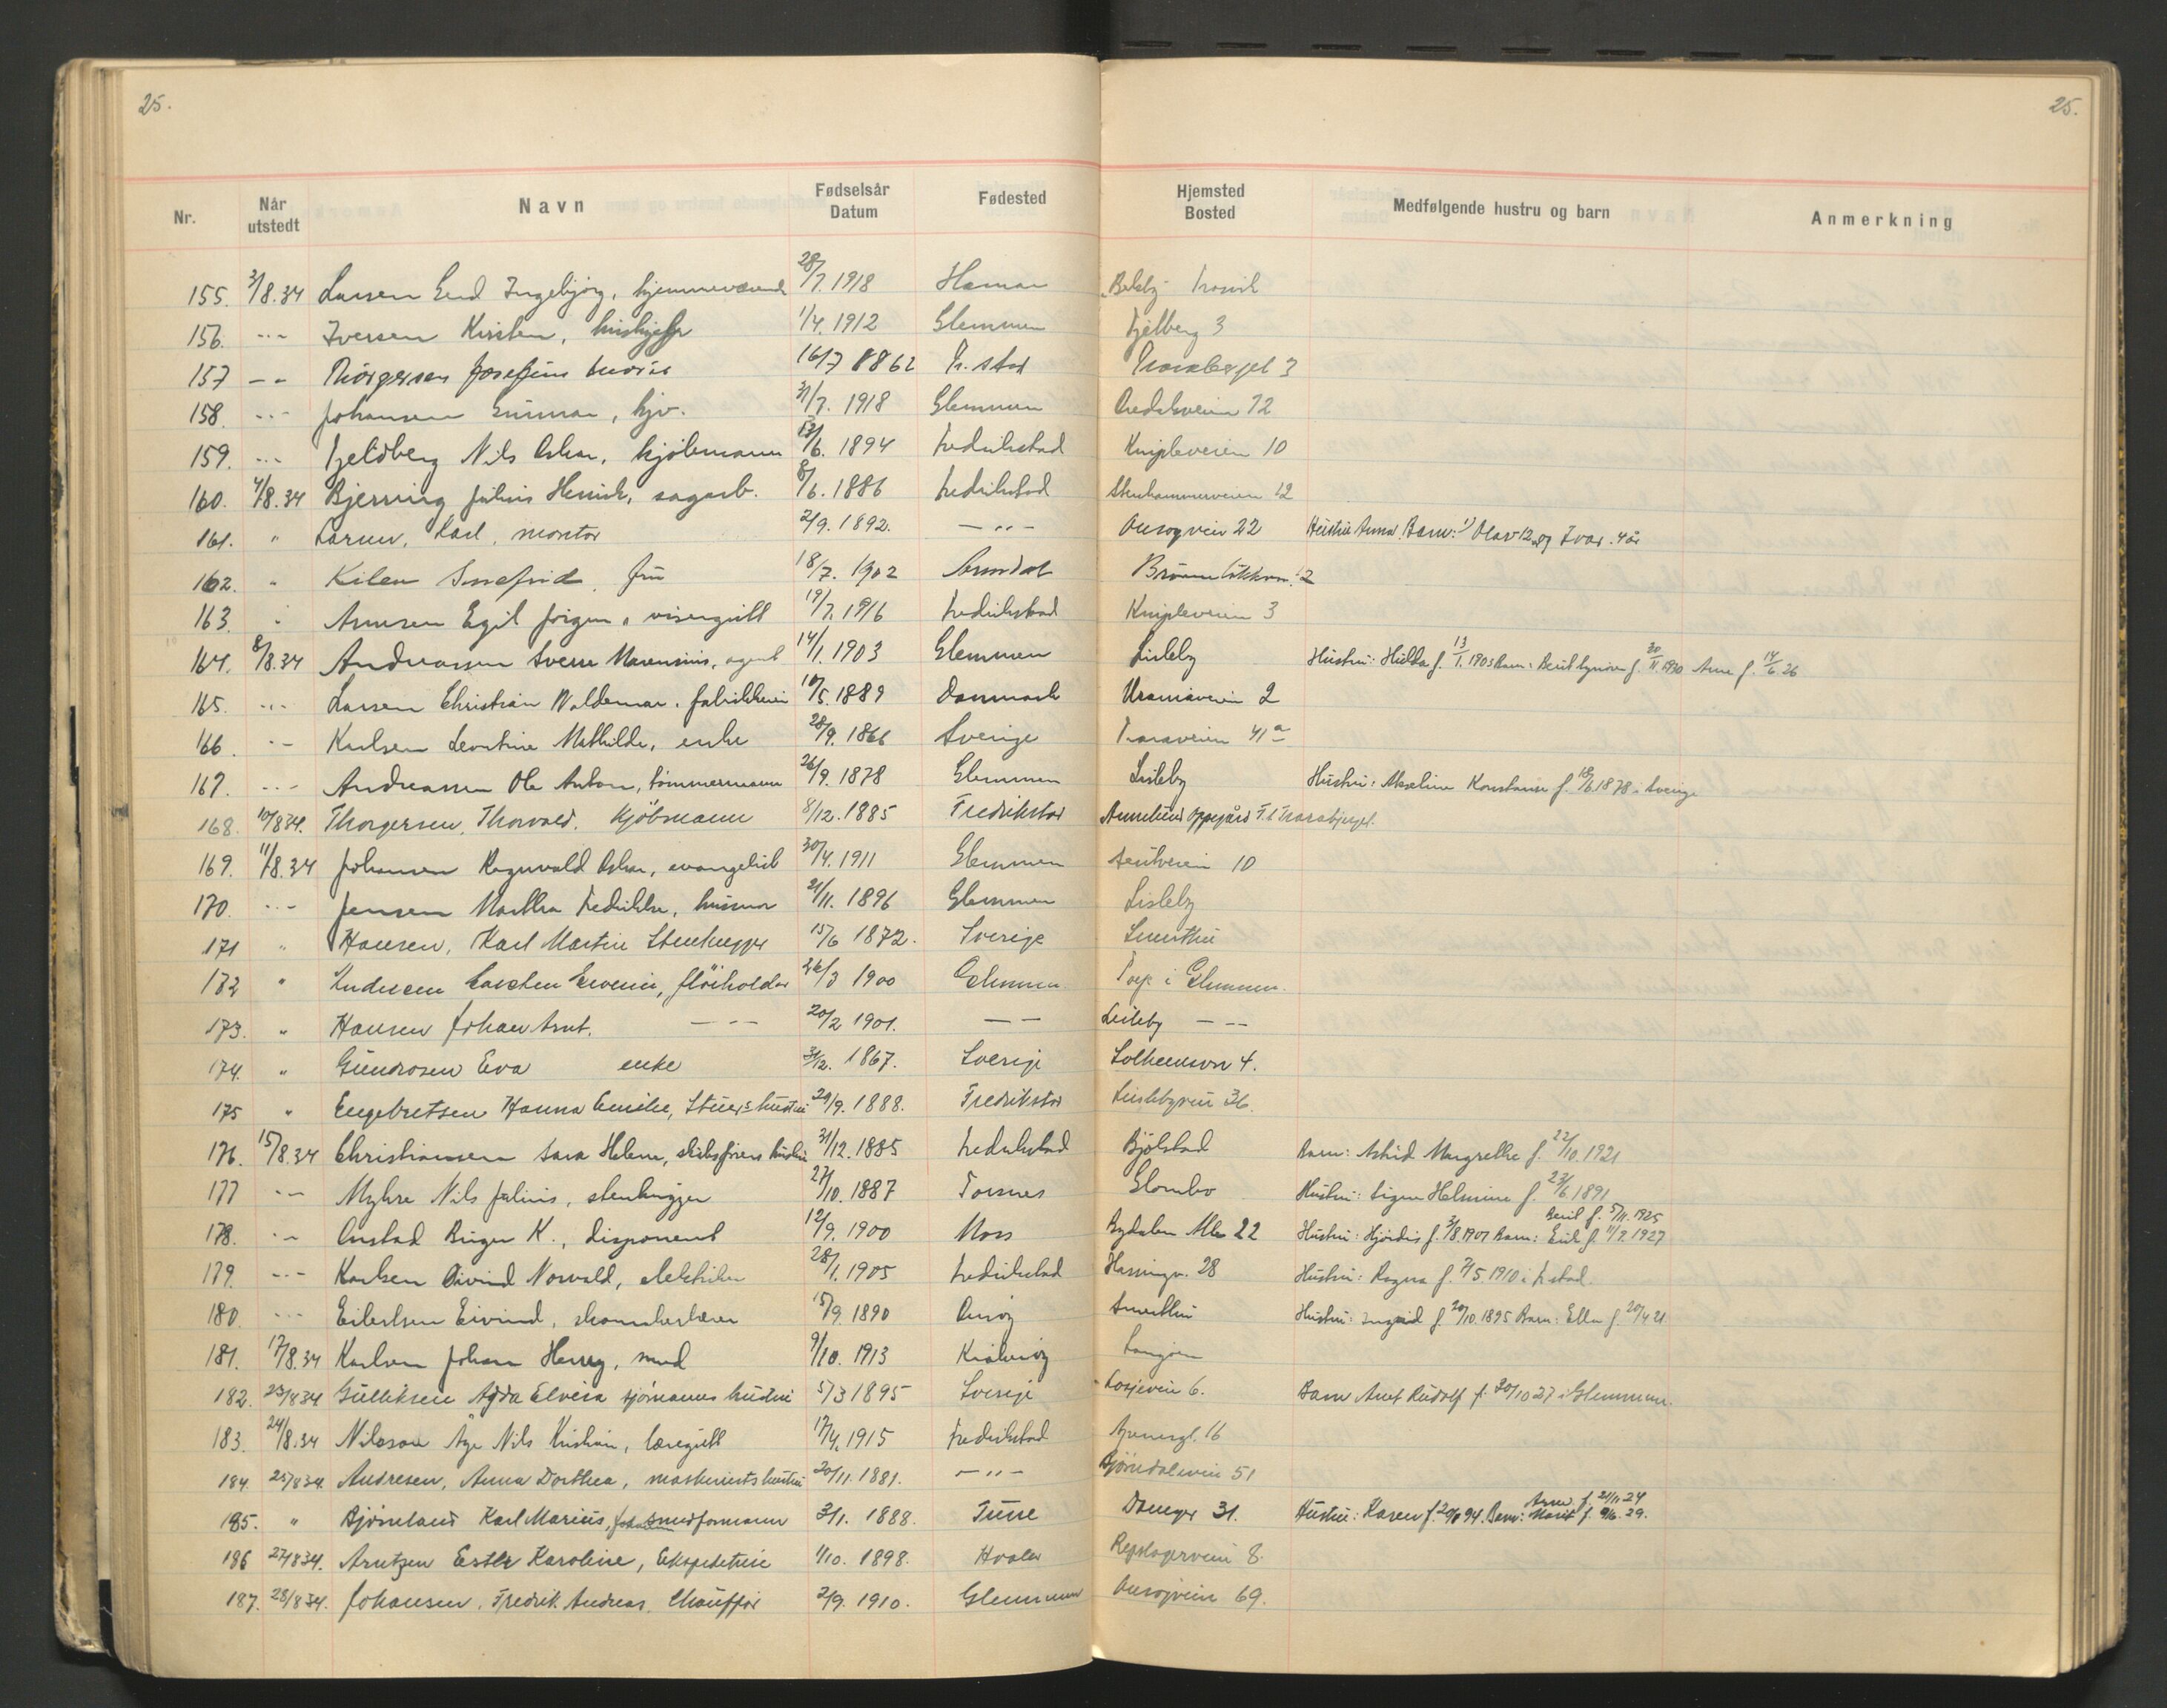 25.
25.
Nr. Når utstedt Navn Fødselsår Datum Fødested Hjemsted Bosted Medfølgende hustru og barn Anmerkning
155. 3/8.34 Larsen Ingebjørg, hjemmeværende 28/7. 1918 Hamar
156. -"- Iversen Kirsten, 1/4. 1912 Glemmen 3
157 -"- Josefine 16/7 1862 Fr.stad 3
158. -"- Johansen Gunnar, hjv. 31/7. 1918 Glemmen 72
159. -"- Fjeldberg Nils Oskar, kjöbmann 13/6. 1894 Fredrikstad Knipleveien 10
160. 4/8.34 Bjerning Julius Henrik, sagarb. 8/6. 1886 Fredrikstad Stenhammerveien 12
161. " Larsen, Karl, montör 2/9. 1892. -"- Onsøyveien 22 Hustru Anna. Barn: 1) Olav 12 og Ivar 4 år
162. " Kilen, fru 18/7. 1902 2
163. " Arnesen Egil Jørgen, visergutt 19/7. 1916 Fredrikstad Knipleveien 3
164. 8/8.34 Andreassen Sverre Marensius, agent 14/1. 1903 Glemmen Lisleby Hustru: Hulda f. 13/1. 1903 Barn: Berit f. 30/11 1930 Arne f. 14/6 26
165. -"- Larsen Christian Waldemar, 10/5. 1889 Danmark Uraniaveien 2
166. -"- Karlsen Leontine Mathilde, enke 28/9. 1866 Sverige Traraveien 41a
167. -"- Andreassen Ole Anton, tömmermann 26/9. 1878 Glemmen Lisleby Hustru: Konstanse f. 18/6 1878 i Sverige
168. 10/8 34. Thorgersen, Thorvald. Kjöbmann 8/12. 1885 Fredrikstad Annelund Oppegård
169. 11/8.34 Johansen Ragnvald Oskar, evangelist 30/4. 1911 Glemmen 10
170. -"- Jensen Martha Fredrikke, husmor 21/11. 1896 Glemmen Lisleby
171 " Hansen, Karl Martin Stenhugger 15/6 1872. Sverige Smerthu
172 " 26/3 1900 Glemmen Torp i Glemmen.
173. " Hansen Johan Arnt. -"- 20/2 1901. -"- Lisleby -"-
174. " Gundrosen Eva enke 31/12. 1867. Sverige 4.
175 " Engebretsen Hanna Emilie, hustru 29/9. 1888. Fredrikstad Lislebyveien 36.
176. 15/8.34 Christiansen Sara Helene, skibsförers hustru 31/12. 1885 Fredrikstad Bjølstad Barn: Astrid Margrethe f. 22/10. 1921
177 -"- Myhre Nils Julius, stenhugger 27/10. 1887 Torsnes Glombo Hustru: Signe Helmine f. 23/6 1891
Berit f. 5/11. 1925
178. -"- Onstad Birger K., disponent 12/9. 1900 Moss Bydalen Alle 22 Hustru: Hjördis f. 3/8.1901 Barn: Erik f. 11/7. 1927
179. -"- Karlsen Öivind Norvald, elektriker 28/1. 1905 Fredrikstad 28 Hustru: Ragna f. 7/5. 1910 i Fr.stad.
180. -"- Eilertsen Eivind, 15/9. 1890 Onsøy Smerthu Hustru: Ingrid f. 20/10. 1895 Barn: Ella f. 20/4 21
181. 17/8.34 Karlsen Johan Henry, smed 9/10. 1913 Kråkerøy Langøen
182. 23/8 34 Gulliksen Agda Elvira sjömanns hustru 5/3 1895 Sverige Losjeveien 6. Barn Arnt Rudolf f. 30/10 27 i Glemmen.
183. 24/8.34 Nilsson Åge Nils Kristian, læregutt 17/4. 1915 Fredrikstad 16
184. 25/8 34. Andresen, Anna Dorthea, maskinists hustru 20/11. 1881. -"- Bjørndalsveien 51
Arne f. 21/11 24
185. " Bjørneland Karl Marius, smedformann 3/1. 1888. Tune 31. Hustru: Karen f. 94. Barn: Marit f. 9/6. 29.
186 27/8 34. Arntzen Ester Karoline, Ekspeditrise 1/10. 1898. Hvaler Repslagerveien 8.
187. 28/8 34. Johansen, Fredrik Andreas. Chauffør 2/9. 1910. Glemmen Onsøyveien 69.